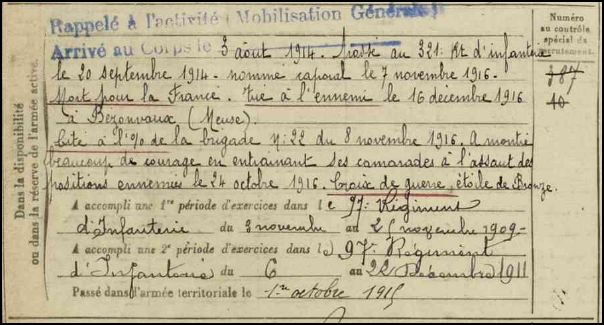 Rappelé à l'activité Mobilisation Générale
Arrivé au Corps le 3 août 1914. au 321e Rt d'infanterie
le 20 septembre 1914 - nommé caporal le 7 novembre 1916 -
Mort pour la France. Tué à l'ennemi le 16 décembre 1916
à Bezonvaux (Meuse).
Cité à l'O/ de la brigade n: 22 du 8 novembre 1916. A montré
beaucoup de courage en entrainant ses camarades à l'assaut des
positions ennemies le 24 octobre 1916. Croix de guerre, étoile de Bronze.
A accompli une 1re période d'exercices dans l e 97e Régiment
d'Infanterie du 3 novembre au 25 novembre 1909 -
A accompli une 2e période d'exercices dans l e 97e Régiment
d'Infanterie du 6 au 22 Décembre 1911
Passé dans l'armée territoriale le 1er octobre 1915
Dans la disponibilité
ou dans la réserve de l'armée active.
Numéro
au contrôle
spécial du
recrutement.
387
40